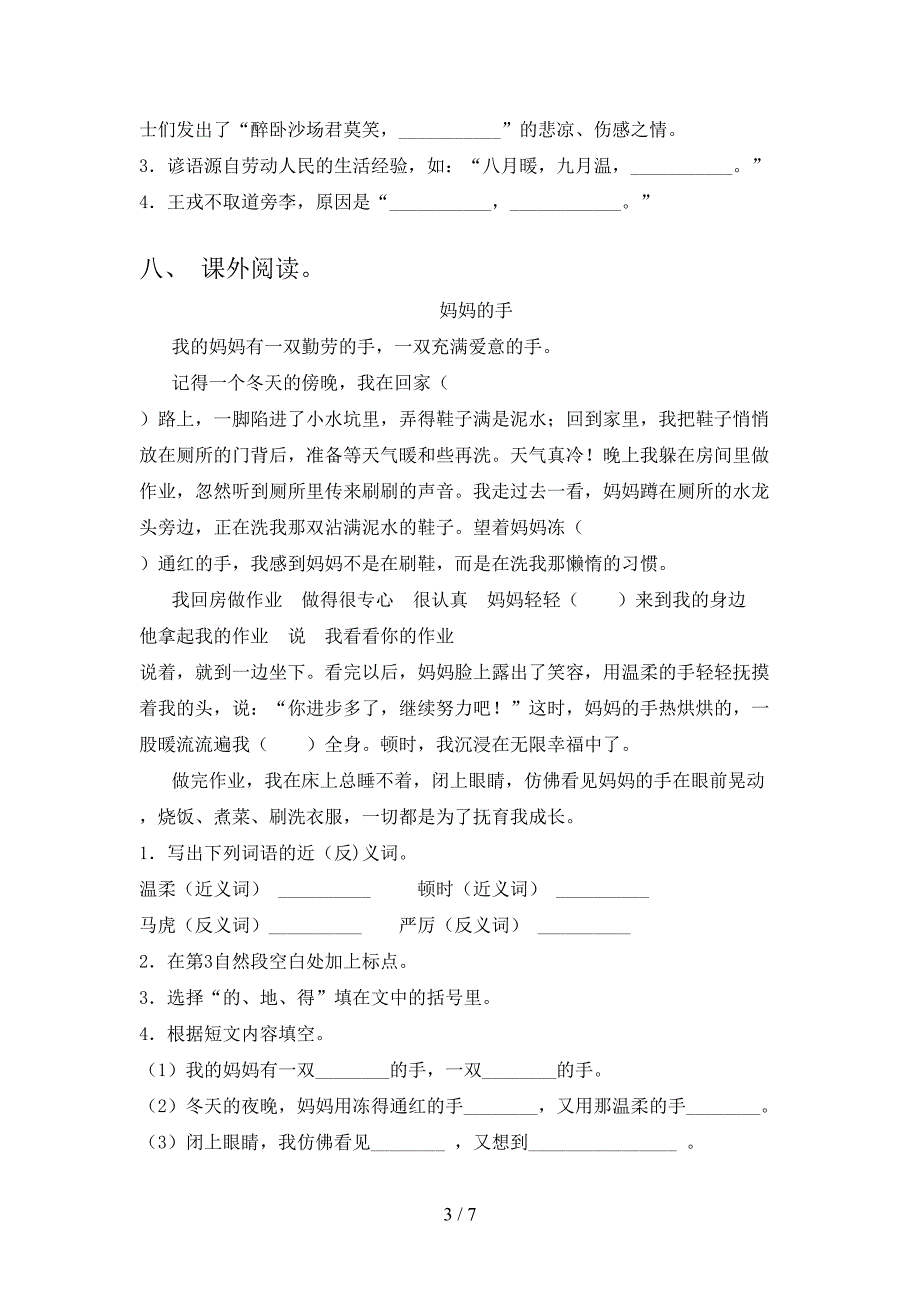 士们发出了“醉卧沙场君莫笑，___________”的悲凉、伤感之情。
3．谚语源自劳动人民的生活经验，如：“八月暖，九月温，___________。”
4．王戎不取道旁李，原因是“___________，____________。”
八、 课外阅读。
妈妈的手
我的妈妈有一双勤劳的手，一双充满爱意的手。
记得一个冬天的傍晚，我在回家（
）路上，一脚陷进了小水坑里，弄得鞋子满是泥水；回到家里，我把鞋子悄悄
放在厕所的门背后，准备等天气暖和些再洗。天气真冷！晚上我躲在房间里做
作业，忽然听到厕所里传来刷刷的声音。我走过去一看，妈妈蹲在厕所的水龙
头旁边，正在洗我那双沾满泥水的鞋子。望着妈妈冻（
）通红的手，我感到妈妈不是在刷鞋，而是在洗我那懒惰的习惯。
我回房做作业　做得很专心　很认真　妈妈轻轻（　　）来到我的身边
他拿起我的作业　说　我看看你的作业
说着，就到一边坐下。看完以后，妈妈脸上露出了笑容，用温柔的手轻轻抚摸
着我的头，说：“你进步多了，继续努力吧！”这时，妈妈的手热烘烘的，一
股暖流流遍我（　　）全身。顿时，我沉浸在无限幸福中了。
做完作业，我在床上总睡不着，闭上眼睛，仿佛看见妈妈的手在眼前晃动
，烧饭、煮菜、刷洗衣服，一切都是为了抚育我成长。
1．写出下列词语的近（反)义词。
温柔（近义词） __________　　 顿时（近义词） __________
马虎（反义词）__________　　严厉（反义词） __________
2．在第3自然段空白处加上标点。
3．选择“的、地、得”填在文中的括号里。
4．根据短文内容填空。
（1）我的妈妈有一双________的手，一双________的手。
（2）冬天的夜晚，妈妈用冻得通红的手________，又用那温柔的手________。
（3）闭上眼睛，我仿佛看见________ ，又想到________________ 。
3 / 7